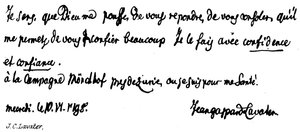 Je sens, que Dieu me pousse, de vous repondre, de vous consoler, qu'il
me permet, de vous confier beaucoup Je le fais avec confidence
et confiance.
à la Campagne près de Zuric, ou je suis pour ma Santé.
mercredi. le
Jean gaspard Lavater
J. C. Lavater.